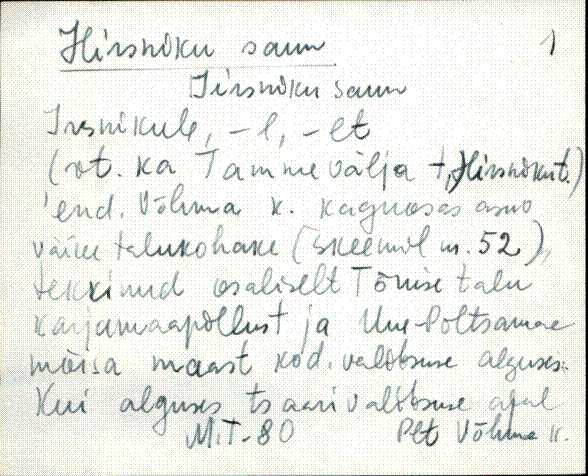 Hirsniku saun 1
Iirsniku saun
Irsnikule, -l, -lt
(vt. ka Tammevälja t, Hirsniku t.)
'end. Võhma k. kaguosas asuv
väike talukohake (skeemil nr. 52),
tekkinud osaliselt Tõnise talu
karjamaapõllust ja Uue-Põltsamaa
mõisa maast kod. valitsuse alguses.
Kui alguses tsaarivalitsuse ajal
M.T-80 Plt Võhma k.